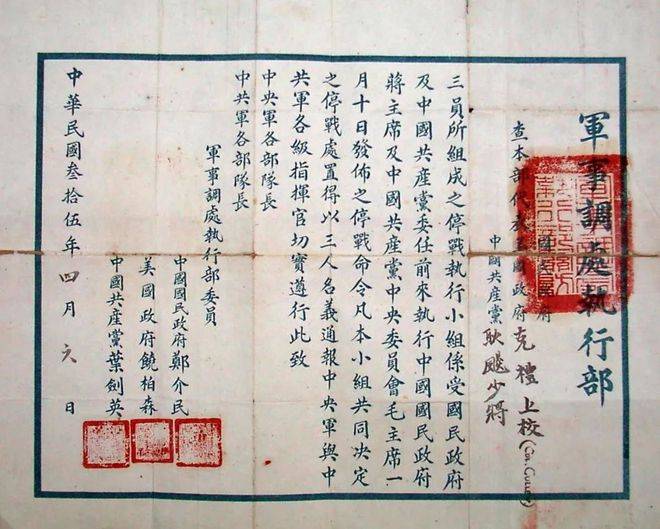 軍事調處執行部
查本部代表國政府克禮上校(Col.
中國共產黨耿飈少將
三員所組成之停戰執行小組係受國民政府
及中國共產黨委任前來執行中國國民政府
蔣主席及中國共產黨中央委員會毛主席一
月十日發佈之停戰命令凡本小組共同决定
之停戰處置得以三人名義通報中央軍與中
共軍各級指揮官切實遵行此致
中央軍各部隊長
中共軍各部隊長
軍事調處執行部委員
中國國民政府鄭介民
美國政府饒柏森
中國共產黨葉劍英
中華民國叁拾伍年四月六日